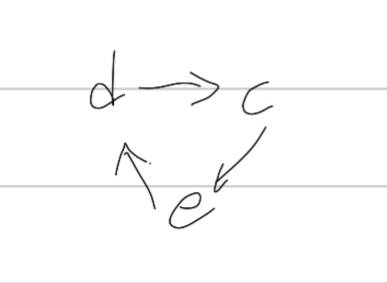 d → c
e